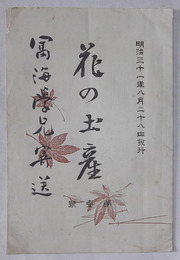 明治三十一年八月二十八日発行
花の土産
第壹號
冨海學兄寄送